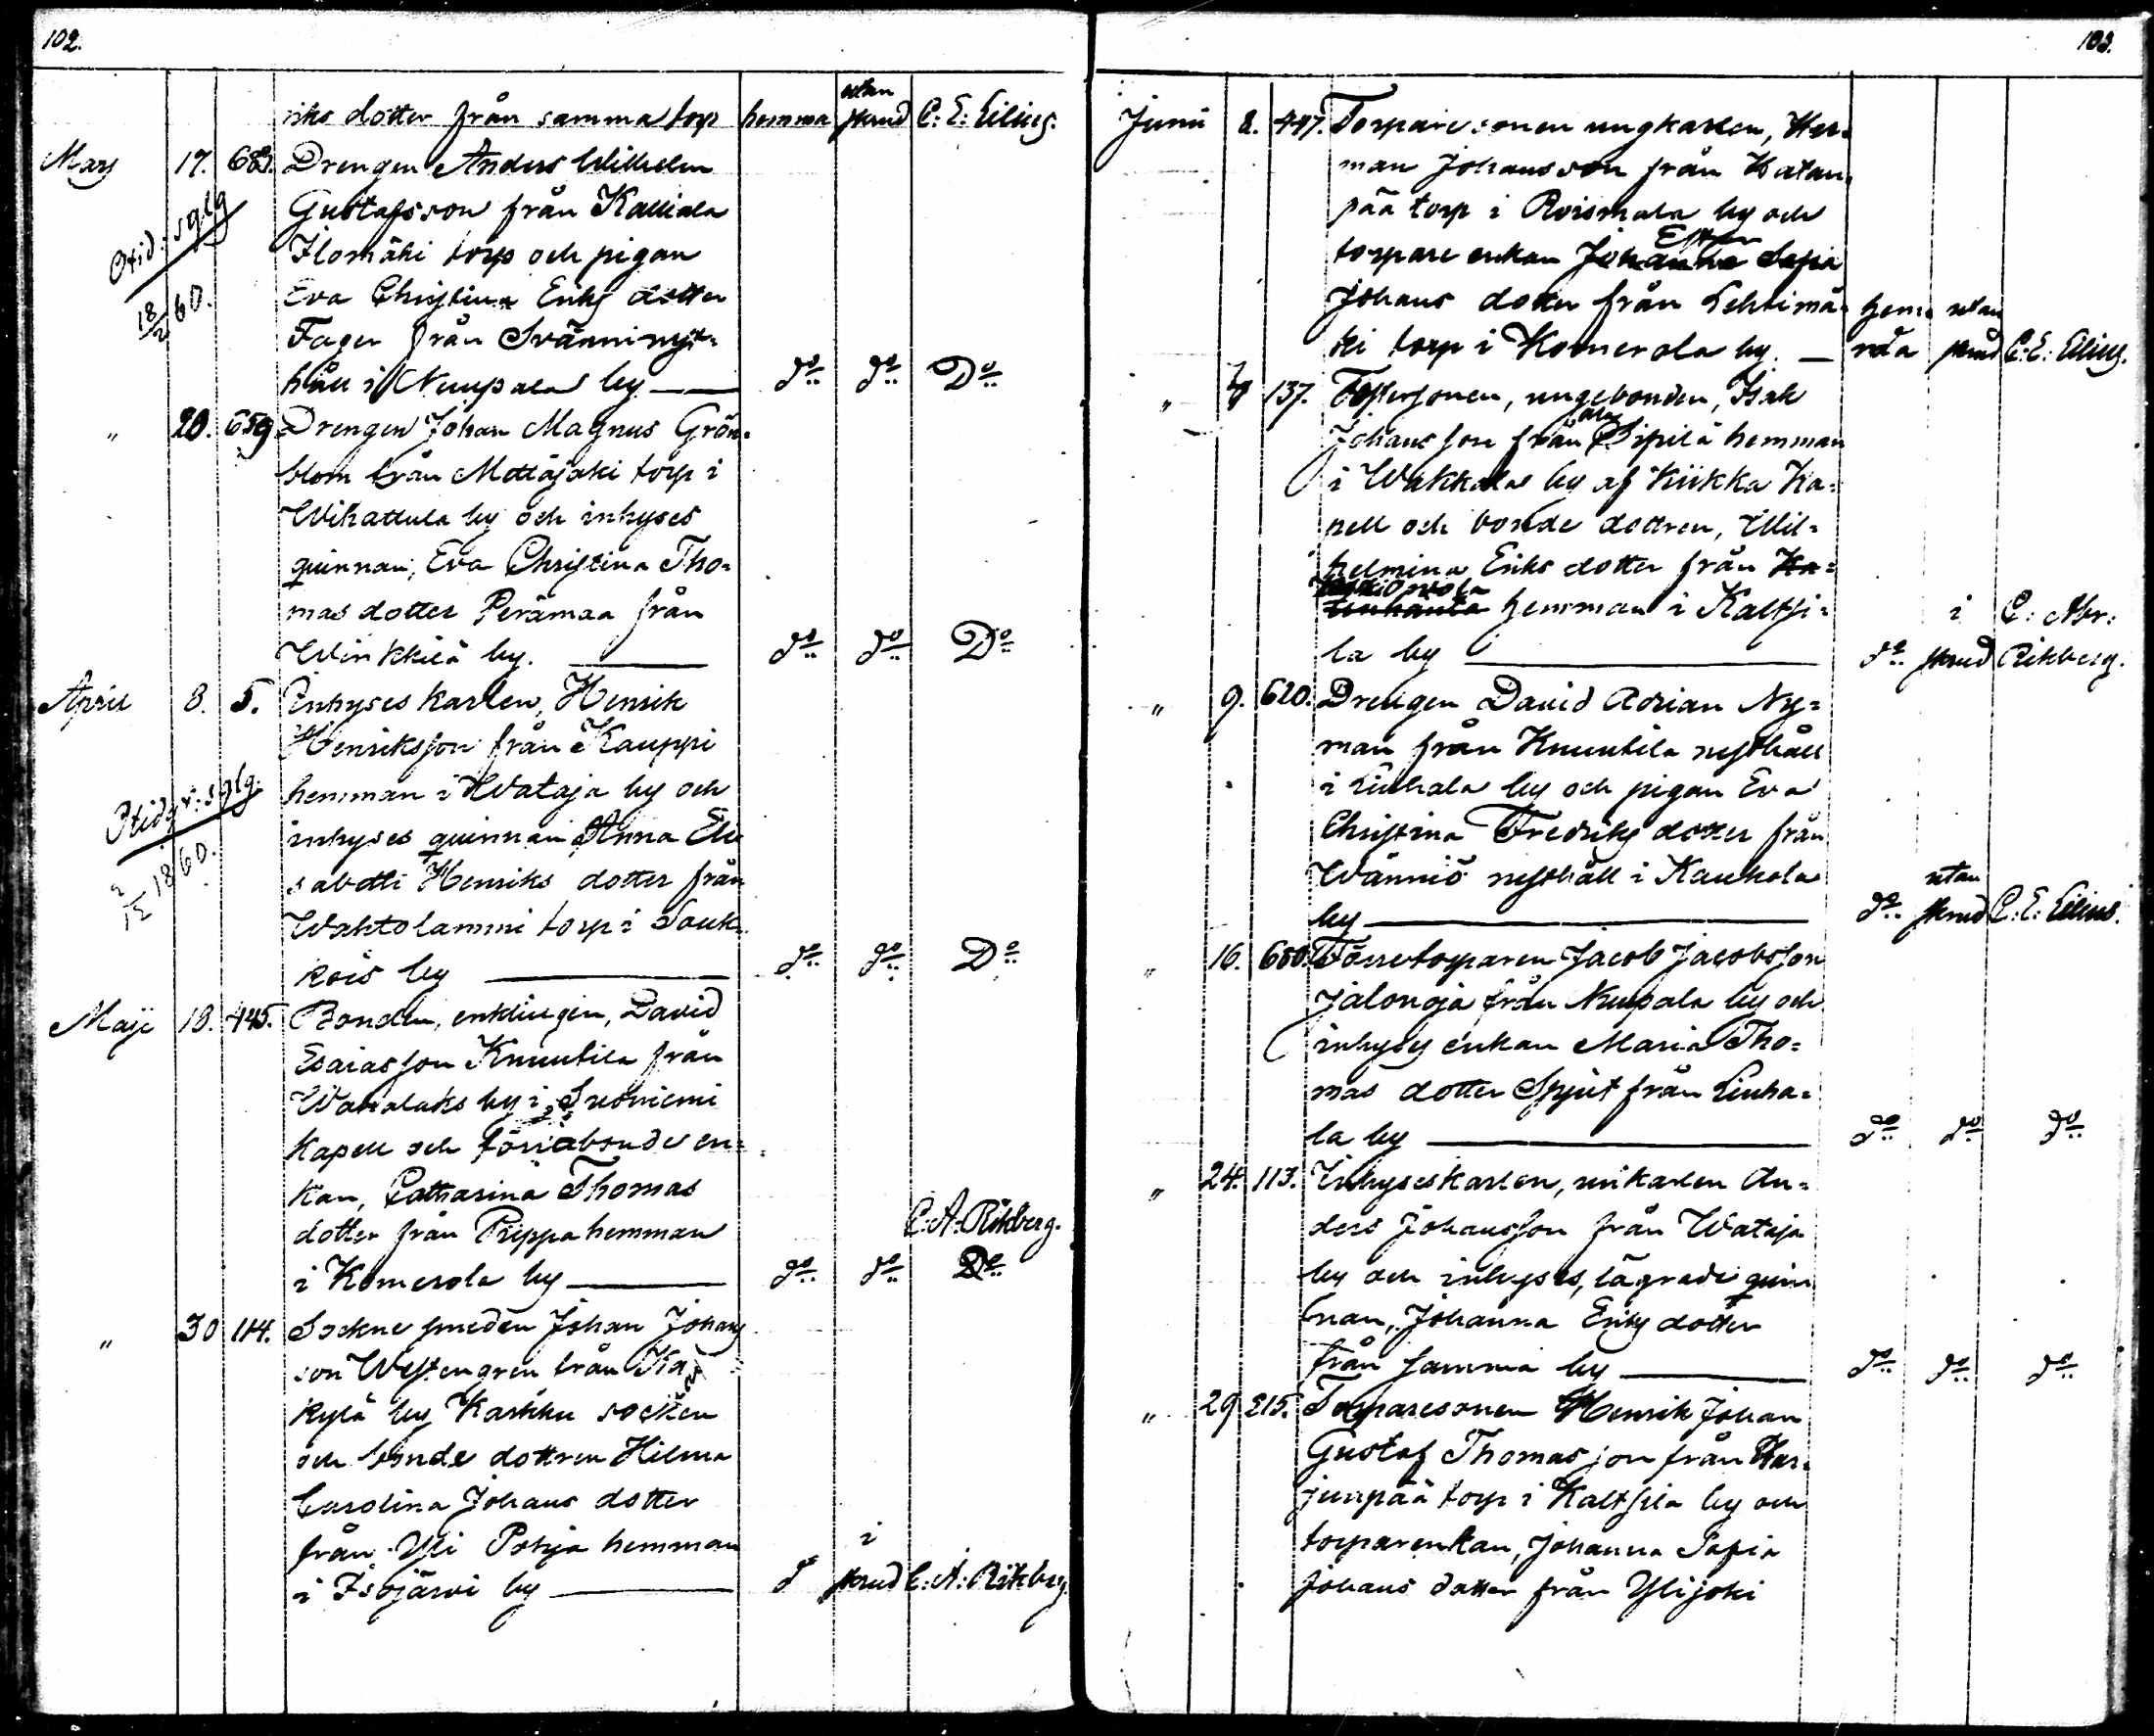 102.
riks dotter från samma torp hemma utan skrud C: E: Eilius.
Mars 17. 683. Drengen Anders Wilhelm
Gustafsson från Kalliala
Ilomäki torp och pigan
Eva Christina Eriks dotter
Fager från Svänni nyt=
håll i Nuupala by. — do do Do
18/2 60.
" 20. 659. Drengen Johan Magnus Grön=
blom från torp i
Wihattula by och inhyses
quinnan, Eva Christina Tho=
mas dotter Perämaa från
Winkkilä by. — do do Do
April 8. 5. Inhyses karlen, Henrik
Henriksson från Kauppi
hemman i Wataja by och
inhyses quinnan Anna Eli
sabetti Henriks dotter från
Wahtolammi torp i Souk=
kois by — do do Do
1860.
Maji 18. 445. Bonden, enklingen, David
Esaiasson Knuutila från
by i Suoniemi
Kapell och bonde en=
kan, Catharina Thomas
dotter från Prippa hemman C: A: Rikberg.
i Komerola by — do do Do
" 30 114. Sockne smeden Johan Johans
son Westengren från Ka
kylä by Karkku socken
och bonde dottren Hilma
Carolina Johans dotter
från Yli Pohja hemman i
i Isojärvi by — d skrud C: A: Rikberg.
103.
Junii 8. 447. Torparesonen ungkarlen, Her=
man Johansson från Katan=
pää torp i Roismala by och
Ester
torpare enkan Johanna Sofia
Johans dotter från Lehtimä= hem= utan
ki torp i Komerola by. — ma skrud C: E: Eilius.
" 137. ungebonden, Isak
Johansson från Ala Sipilä hemman
i Wakkala by af Kiikka Ka=
pell och bonde dottren, Wil=
helmina Eriks dotter från Ka=
hemman i Kaltsi= i C: Abr:
la by — do skrud Rikberg.
" 9. 620. Drengen David Adrian Ny=
man från Knuutila nysthåll
i Liuhala by och pigan Eva
Christina Fredriks dotter från
Wänniö nysthåll i Kaukola utan
by — do skrud C: E: Eilius.
" 16. 680. Förretorparen Jacob Jacobsson
Jalonoja från Nuupala by och
inhyses enkan Maria Tho=
mas dotter Spjut från Liuha=
la by — do do do
" 24. 113. Inhyseskarlen, enkarlen An=
ders Johansson från Wataja
by och inhyses, lägrade quin
nan, Johanna Eriks dotter
från samma by — do do do
" 29 215. Torparesonen Henrik Johan
Gustaf Thomasson från Har=
junpää torp i Kaltsila by och
torparenkan, Johanna Sofia
Johans dotter från Ylijoki